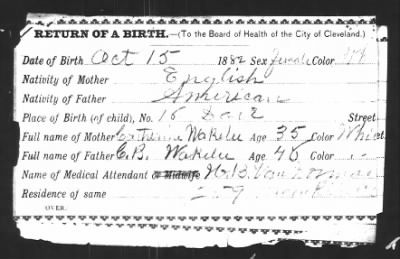 RETURN OF A BIRTH.—(To the Board of Health of the City of Cleveland.)
Date of Birth Oct 15 1882 Sex Female Color Wh
Nativity of Mother English
Nativity of Father American
Place of Birth (of child), No. 16 Street
Full name of Mother Catherine Wakelee Age 35 Color White
Full name of Father C.B. Wakelee Age 46 Color "
Name of Medical Attendant or Midwife
Residence of same
OVER.